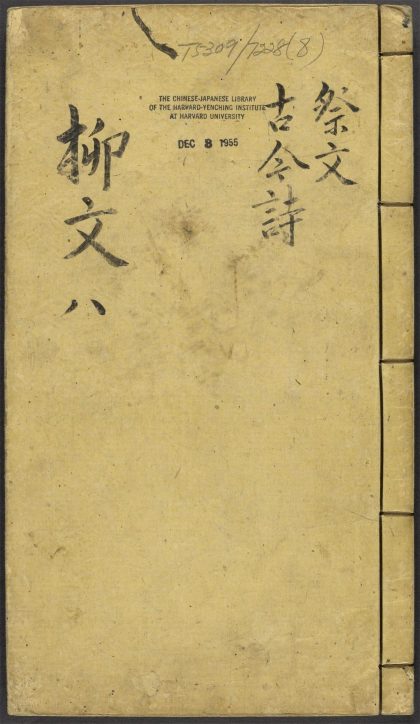 T5309/7228(8)
THE CHINESE-JAPANESE LIBRARY
OF THE HARVARD-YENCHING INSTITUTE
AT HARVARD UNIVERSITY
DEC 8 1955
祭文
古今詩
柳文 八